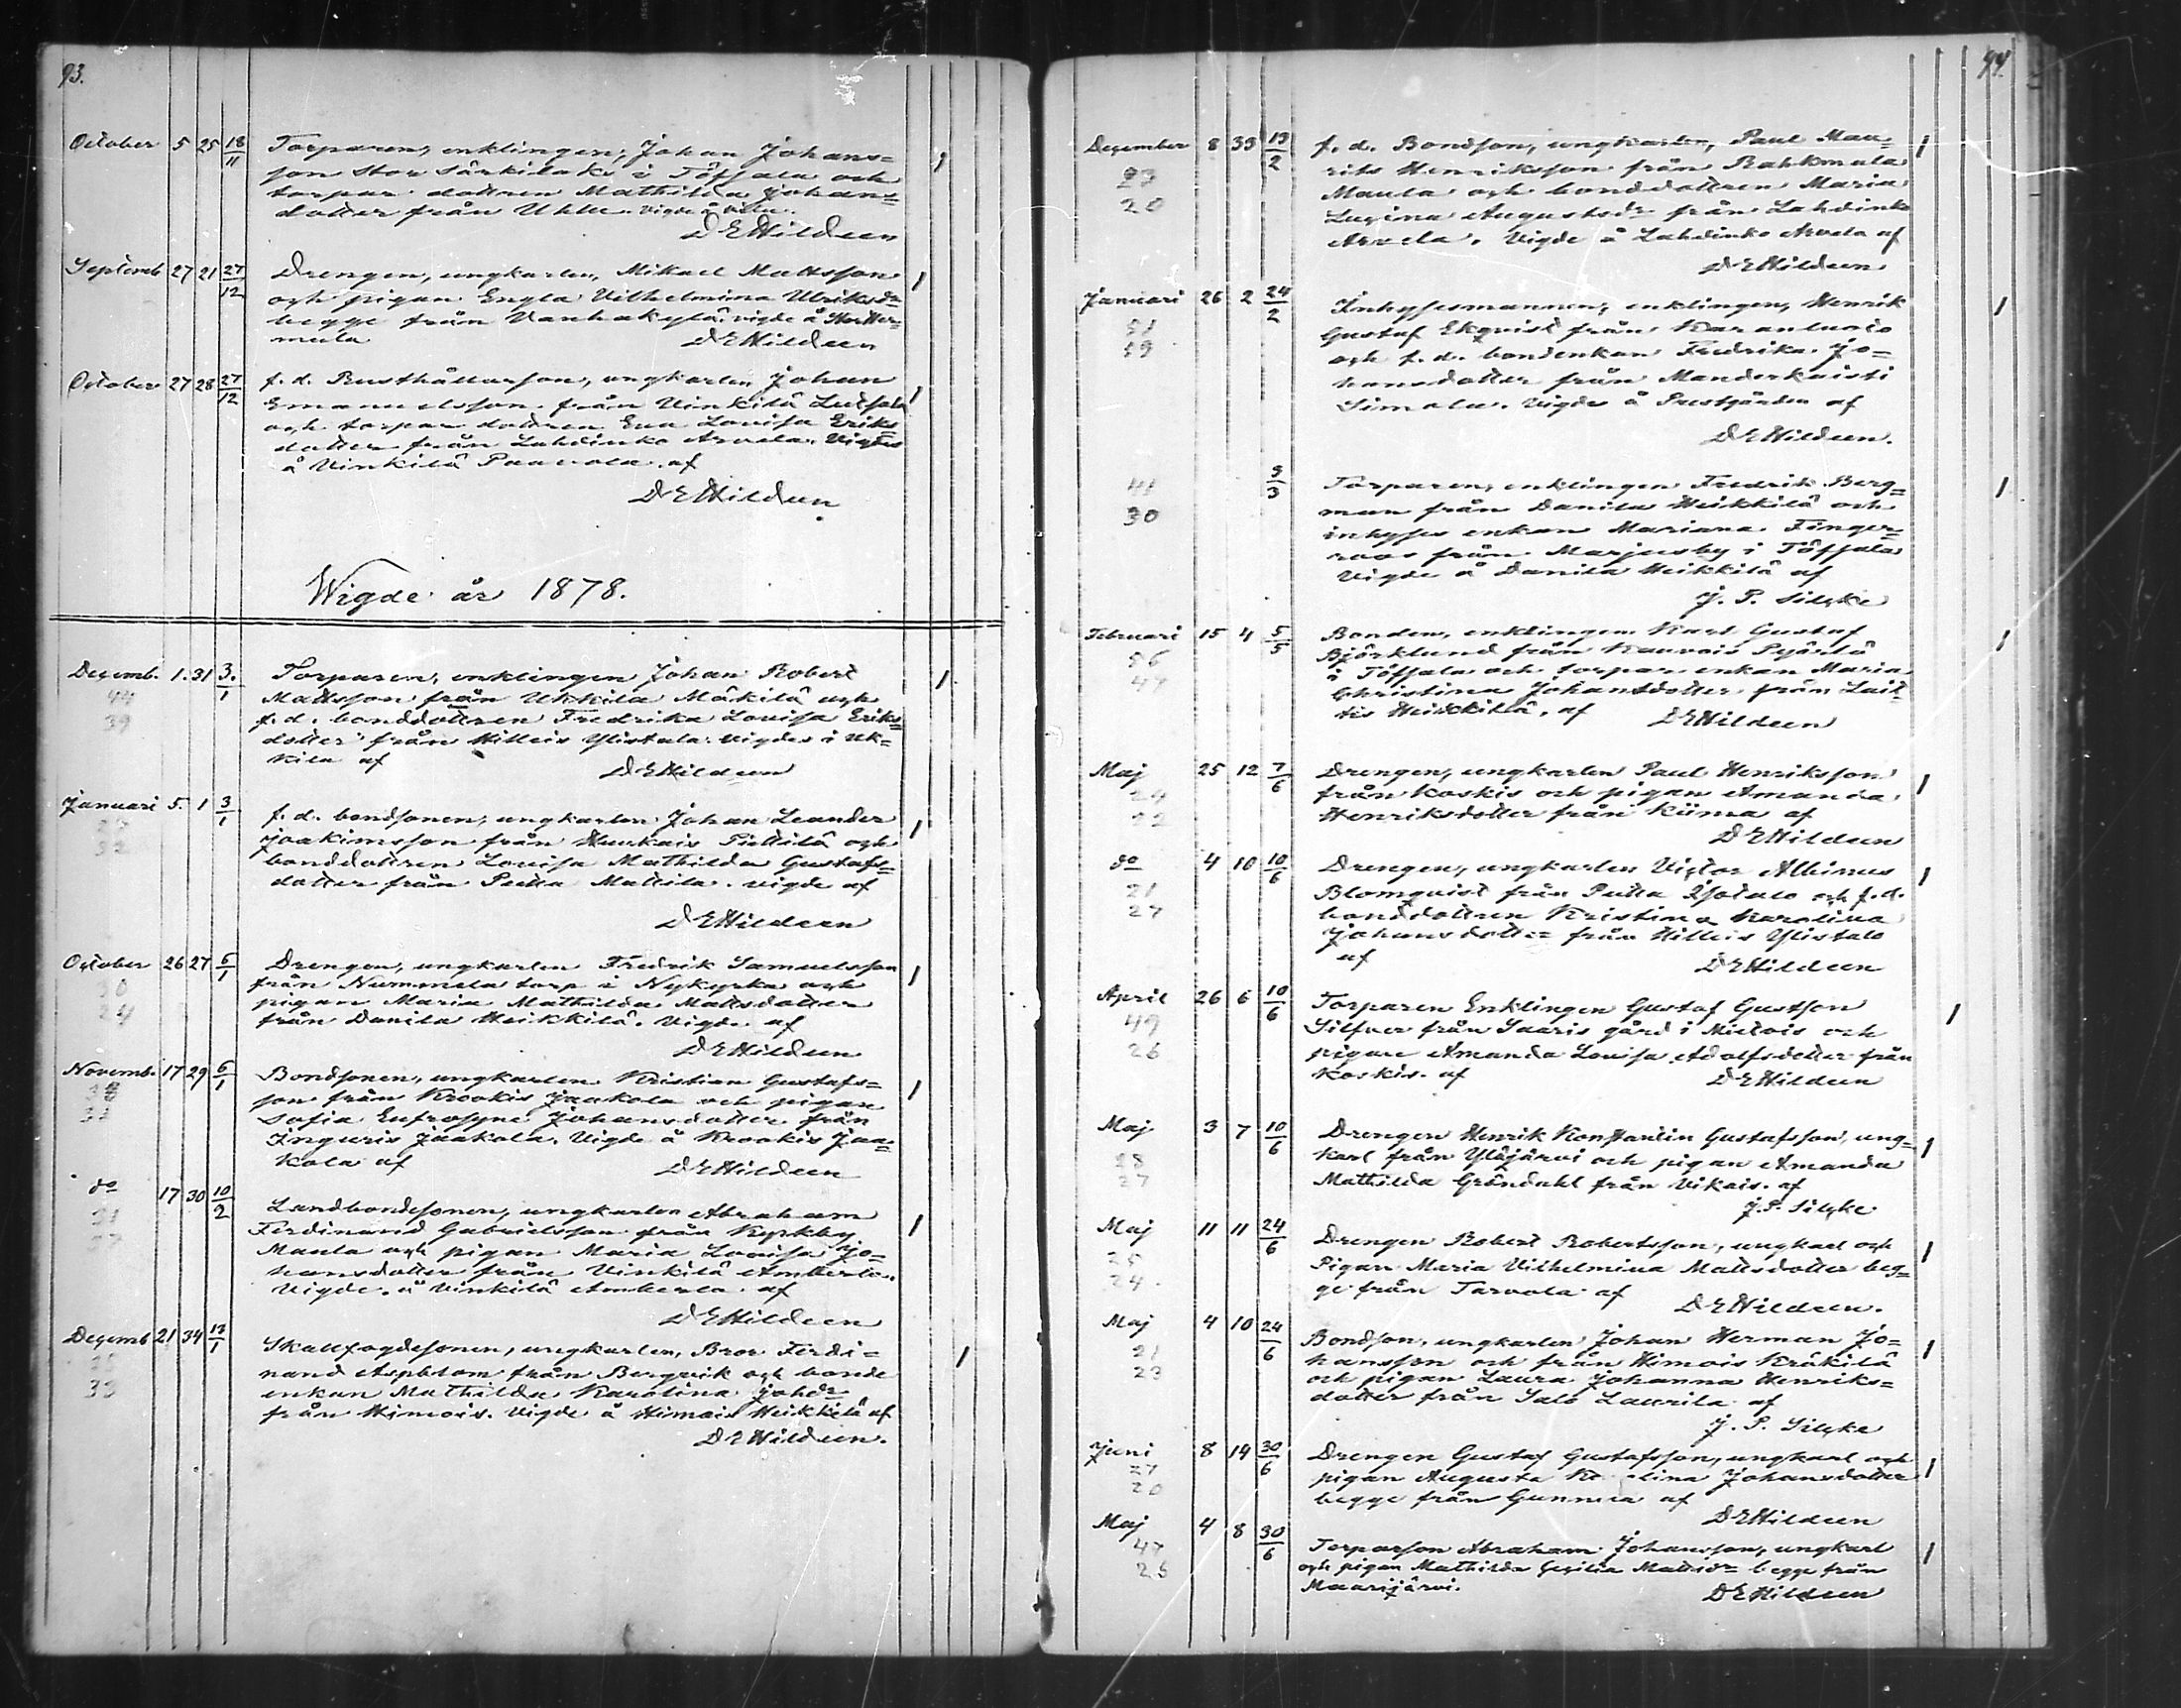 93.
October 5 25 18/11 Torparen, enklingen, Johan Johans=
son Stor Särkilaks i Töfsala och
torpar dottren Mathilda Johans=
dotter från Uhlu. vigde å
D E Hildeen
Septemb 27 21 27/12 Drengen, ungkarlen, Mikael Mattsson
och pigan Engla Vilhelmina Ulriksdr
begge från Vanhakylä. vigde å
mela D E Hildeen
October 27 28 27/12 f. d. Rusthållarson, ungkarlen Johan
Emanuelsson från Vinkilä
och torpar dottren Eva Lovisa Eriks=
dotter från Lahdinko Arvela. Vigdes
å Vinkilä Paavola. af
D E Hildeen
Wigde år 1878.
Decemb. 1. 31 3./1 Torparen, enklingen Johan Robert
44 Mattsson från Ukkila Mäkilä och
39 f. d. bonddottren Fredrika Lovisa Eriks=
dotter från Hilleis Ylistalo. vigdes i Uk=
kila af D E Hildeen
Januari 5. 1 3/1 f. d. bondsonen, ungkarlen Johan Leander
Joakimsson från Huukais Pietilä och
bonddottren Lovisa Mathilda Gustafs=
dotter från Putta Mattila. vigde af
D E Hildeen
October 26 27 6/1 Drengen, ungkarlen Fredrik Samuelsson
30 från Nummela torp i Nykyrka och
24 pigan Maria Mathilda Mattsdotter
från Danila Heikkilä. Vigde af
D E Hildeen
Novemb. 17 29 6/1 Bondsonen, ungkarlen Kristian Gustafs=
son från Krookis Jaakola och pigan
Sofia Eufrosyne Johansdotter från
Inguris Jaakola. Vigde å Krookis Jaa=
kola af D E Hildeen
do 17 30 10/2 Landbondesonen, ungkarlen Abraham
Ferdinand Gabrielsson från Kyrkby
Maula och pigan Maria Lovisa Jo=
hansdotter från Vinkilä
Vigde å Vinkilä af
D E Hildeen
Decemb 21 34 13/1 Skallfogdesonen, ungkarlen, Bror Ferdi=
nand Asplbom från Bergvik och bonde
39 enkan Mathilda Karolina Johdr
från Himois. Vigde å Himois Heikkilä af
D E Hildeen.
94.
December 8 33 19/2 f. d. Bondson, ungkarlen, Paul Mau=
23 rits Henriksson från Rahkmala
20 Maula och bonddottren Maria
Lucina Augustsdr från Lahdinko
Arvela. Vigde å Lahdinko Arvela af
D E Hildeen
Januari 26 2 24/2 Inhysesmannen, enklingen, Henrik
51 Gustaf Ekqvist från Karanluoto
59 och f. d. bondenkan Fredrika Jo=
hansdotter från Manderkaisti
Simola. Vigde å Prestgården af
D E Hildeen.
9/3 Torparen, enklingen Fredrik Berg=
41 man från Danila Heikkilä och
30 inhyses enkan Mariana Finger=
roos från Marjusby i Töfsala
Vigde å Danila Heikkilä af
J. P. Silcke
Februari 15 4 5/5 Bonden, enklingen Karl Gustaf
56 Björklund från
47 i Töfsala och torpar enkan Maria
Christina Johansdotter från Lait=
tis Heikkilä, af D E Hildeen
Maj 25 12 7/6 Drengen, ungkarlen Paul Henriksson
24 från Koskis och pigan Amanda
22 Henriksdotter från Kiima af
D E Hildeen
do 4 10 10/6 Drengen, ungkarlen Victor Albinus
21 Blomquist från Putta Isotalo och f. d.
27 bonddottren Kristina Karolina
Johansdotter från Hilleis Ylistalo
af D E Hildeen
April 26 6 10/6 Torparen Enklingen Gustaf Gustfson
49 Silfver från Saaris gård i Mietois och
26 pigan Amanda Lovisa Adolfsdotter från
Koskis. af D E Hildeen
Maj 3 7 10/6 Drengen Henrik Konstantin Gustafsson, ung=
28 karl från Yläjärvi och pigan Amanda
27 Mathilda Gröndahl från Vikais. af
J. P. Silcke
Maj 11 11 24/6 Drengen Robert Robertsson, ungkarl och
25 Pigan Maria Vilhelmina Mattsdotter beg=
24 ge från Tarvola af D E Hildeen.
Maj 4 10 24/6 Bondson, ungkarlen Johan Herman Jo=
21 hansson och från Himois Kräkilä
23 och pigan Laura Johanna Henriks=
dotter från Salo Laurila af
J. P. Silcke
Juni 8 14 30/6 Drengen Gustaf Gustafsson, ungkarl och
27 pigan Augusta Johansdotter
20 begge från Gunnila af
D E Hildeen
Maj 4 8 30/6 Torparson Abraham Johansson, ungkarl
47 och pigan Mathilda Cecilia Mattsdr begge från
25 Maarijärvi. D E Hildeen